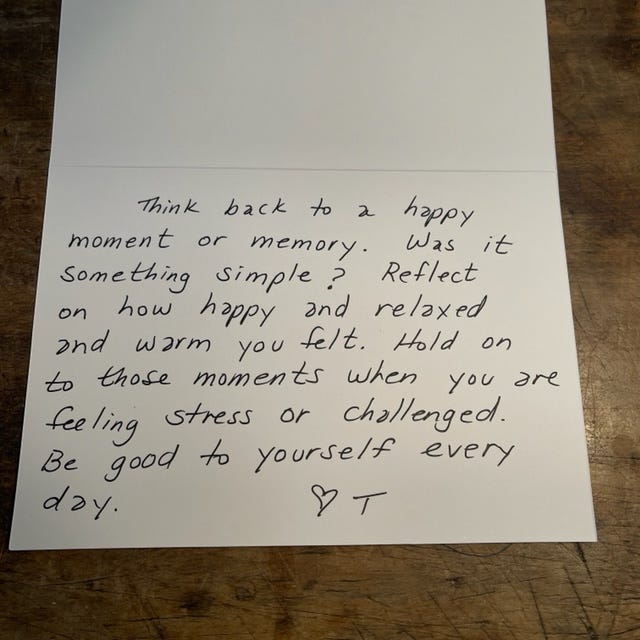 Think back to a happy
moment or memory. Was it
something simple? Reflect
on how happy and relaxed
and warm you felt. Hold on
to those moments when you are
feeling stress or challenged.
Be good to yourself every
day. ♡ T